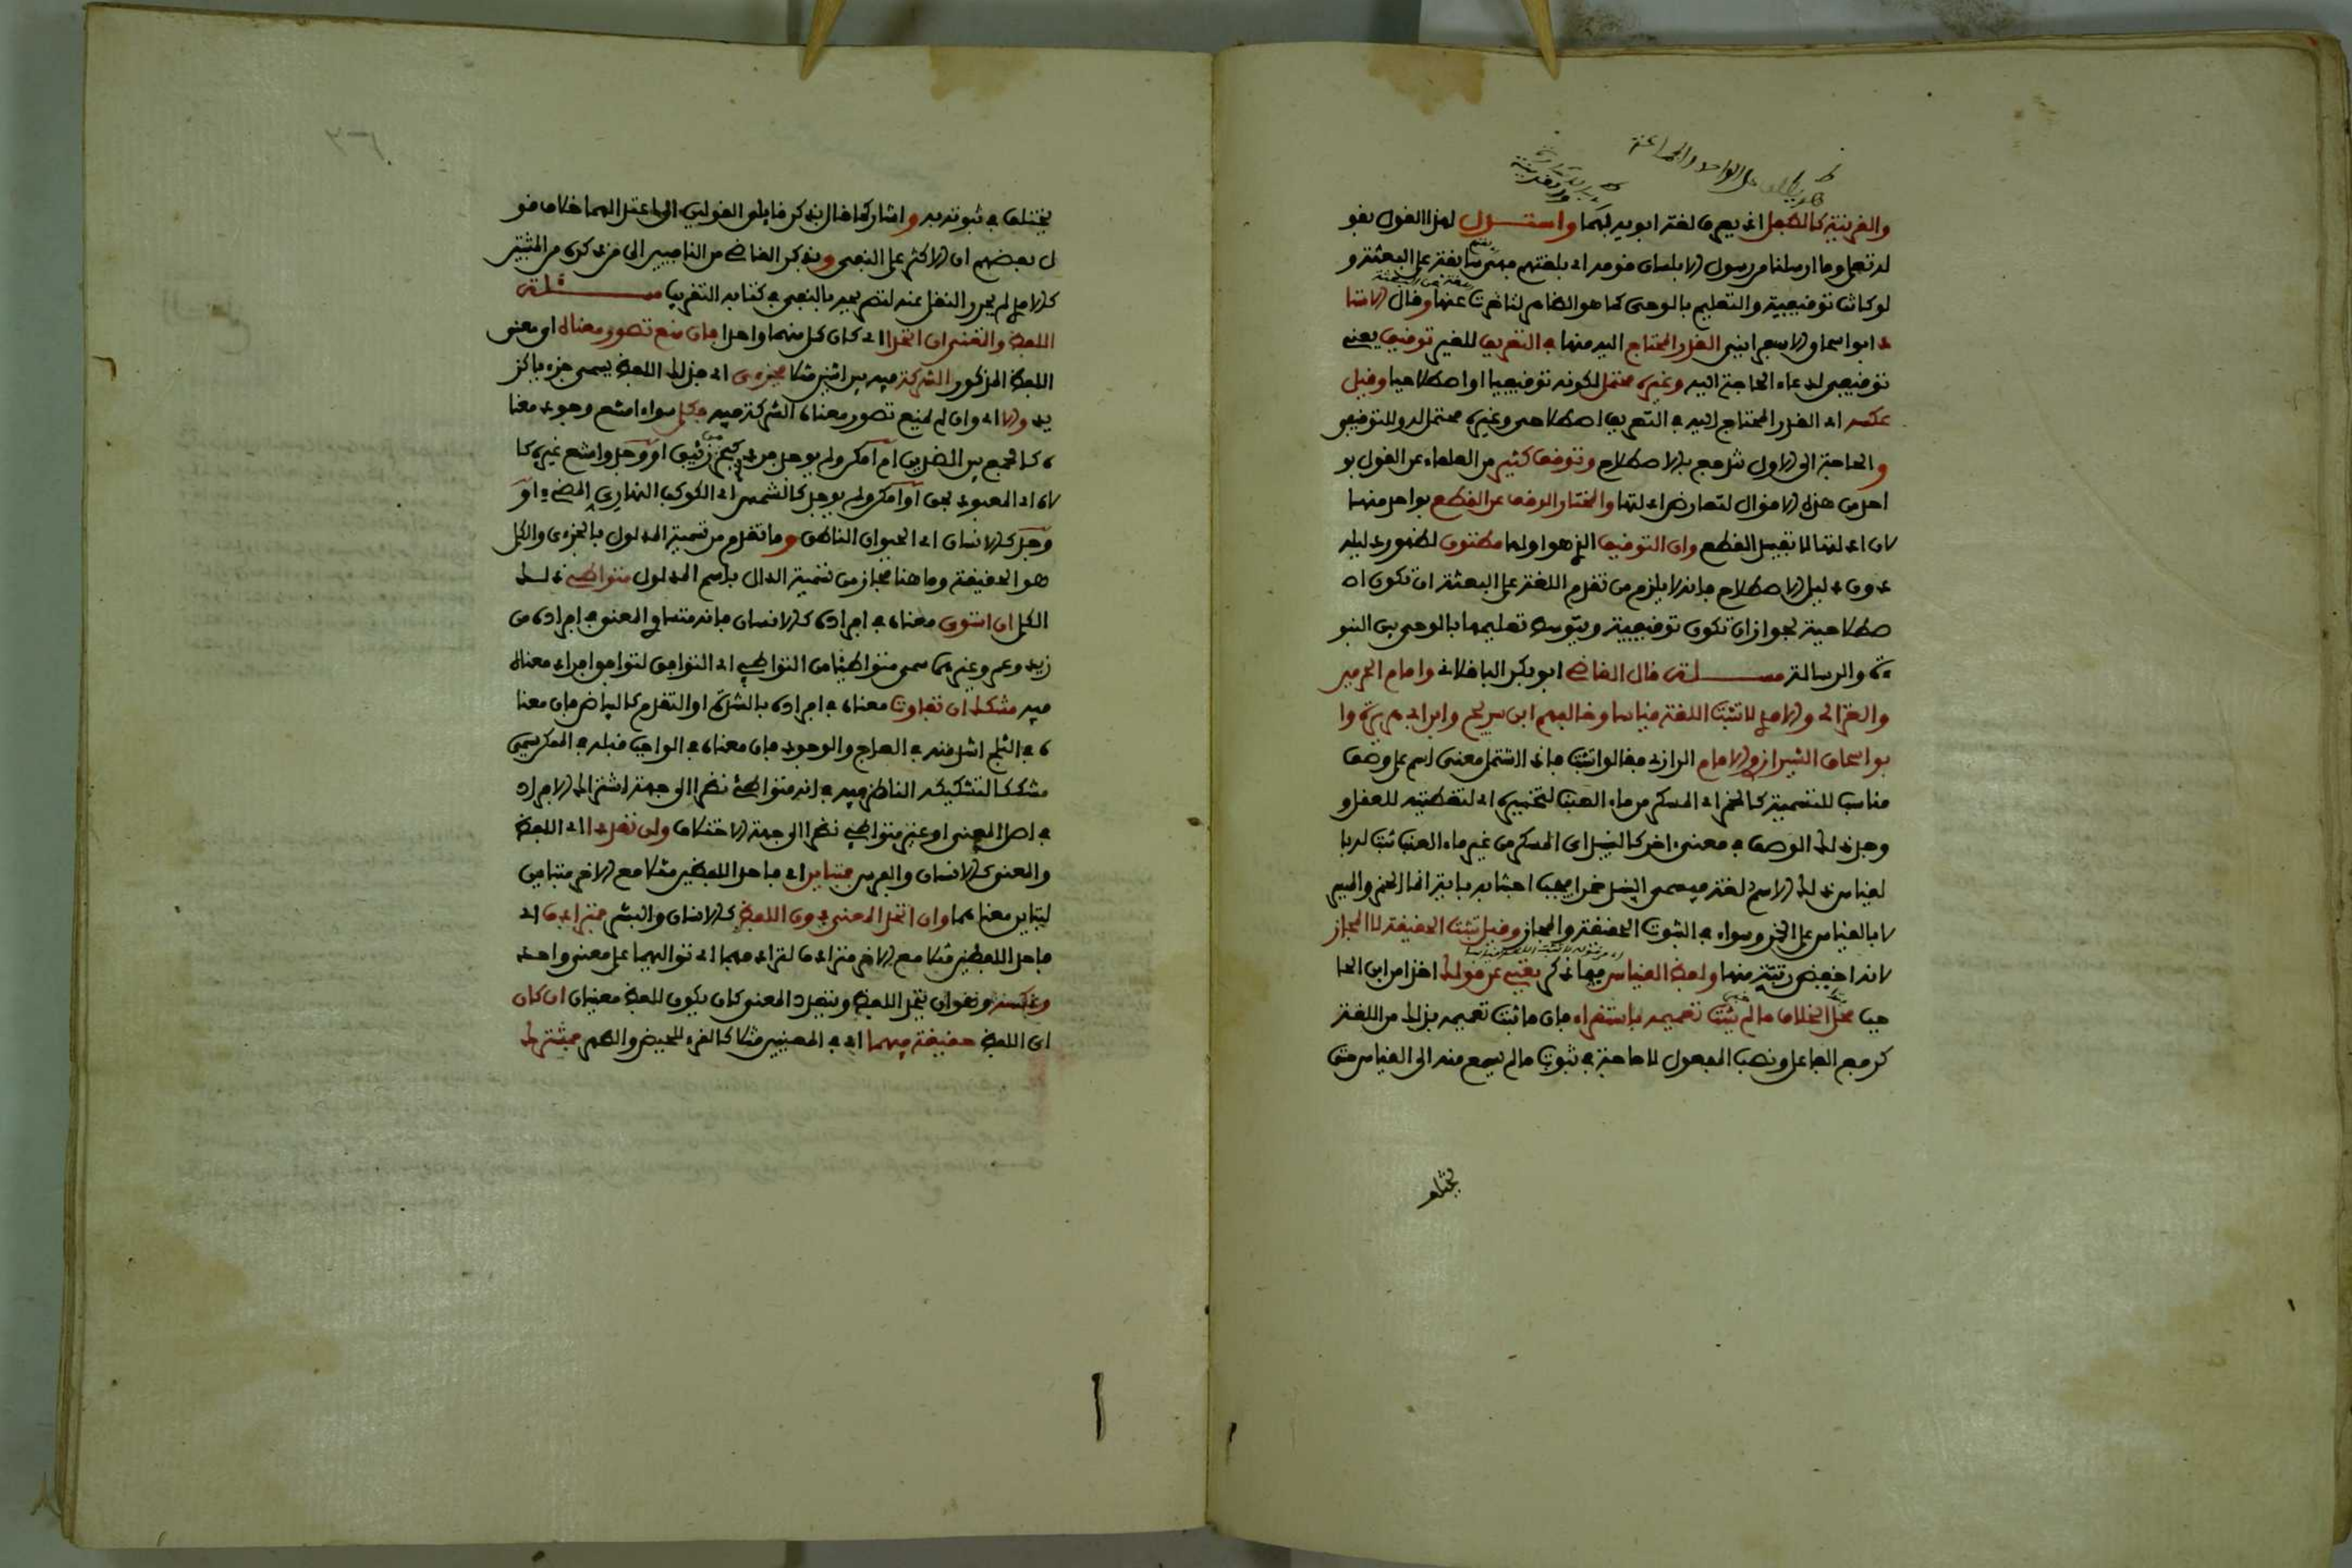 والقرينة كالطفل اذ يعرف لغة ابويه بهما واستدل لهذا القول بقو
له تعالى وما ارسلنا من رسول الا بلسان قومه اي بلغتهم فهي سابقة على البعثة و
لو كانت توقيفية والتعليم بالوحي كما هو الظاهر لتاخرت عنها وقال الاستا
ذ ابو اسحاق الاسفرايني القدر المحتاج اليه منها في التعريف للغير توقيف يعني
توقيفي لدعاء الحاجة اليه وغيره محتمل لكونه توقيفيا او اصطلاحيا وقيل
عكسه اي القدر المحتاج اليه في التعريف اصطلاحي وغيره محتمل له وللتوقيف
والحاجة الى الاول تندفع بالاصطلاح وتوقف كثير من العلماء عن القول بو
احد من هذه الاقوال لتعارض ادلتها والمختار الوقف عن القطع بواحد منها
لان ادلتها لا تفيد القطع وان التوقيف الذي هو اولها مظنون لظهور دليله
دون دليل الاصطلاح فانه لا يلزم من تقدم اللغة على البعثة ان تكون اص
طلاحية لجواز ان تكون توقيفية ويتوسط تعليمها بالوحي بين النبو
ة والرسالة مسئلة قال القاضي ابو بكر الباقلاني وامام الحرمين
والغزالي والامدي لا تثبت اللغة قياسا وخالفهم ابن سريج وابن ابي هريرة وا
بو اسحاق الشيرازي والامام الرازي فقالوا تثبت فاذا اشتمل معنى اسم على وصف
مناسب للتسمية كالخمر اي المسكر من ماء العنب لتخميره اي لتغطيته للعقل و
وجد ذلك الوصف في معنى اخر كالنبيذ اي المسكر من غير ماء العنب ثبت له با
لقياس ذلك الاسم لغة فيسمى النبيذ خمرا فيجب اجتنابه باية انما الخمر والميسر
لا بالقياس على الخمر وسواء في الثبوت الحقيقة والمجاز وقيل تثبت الحقيقة لا المجاز
لانه اخفض رتبة منها ولفظ القياس فيما ذكر يغني عن قولك اخذا من ابن الحا
جب محل الخلاف ما لم يثبت تعميمه باستقراء فان ما ثبت تعميمه بذلك من اللغة
كرفع الفاعل ونصب المفعول لا حاجة في ثبوت ما لم يسمع منه الى القياس حتى
يختلف
يختلف في ثبوته به واشار كما قال بذكر قائلي القولين الى اعتدالهما خلاف قو
ل بعضهم ان الاكثر على النفي وبذكر القاضي من النافين الى من ذكره من المثبتين
كالامدي لم يحرر النقل عنه لتصريحه بالنفي في كتابه التقريب مسئلة
اللفظ والمعنى ان اتحدا اي كان كل منهما واحدا فان منع تصور معناه اي معنى
اللفظ المذكور الشركة فيه من اثنين مثلا فجزءي اي فذلك اللفظ يسمى جزءيا كز
يد والا اي وان لم يمنع تصور معناه الشركة فيه فكلي سواء امتنع وجود معنا
ه كالجمع بين الضدين ام امكن ولم يوجد فرد كبحر من زئبق او وجد وامتنع غيره كا
لاه اي المعبود بحق او امكن ولم يوجد كالشمس اي الكوكب النهاري المضيء او
وجد كالانسان اي الحيوان الناطق وما تقدم من تسمية المدلول بالجزءي والكلي
هو الحقيقة وما هنا مجاز من تسمية الدال باسم المدلول متواطئ ذلك
الكلي ان استوى معناه في افراده كالانسان فانه متساوي المعنى في افراده من
زيد وعمرو وغيرهما سمي متواطئا من التواطي اي التوافق لتوافق افراد معناه
فيه مشكك ان تفاوت معناه في افراده بالشدة او التقدم كالبياض فان معنا
ه في الثلج اشد منه في العاج والوجود فان معناه في الواجب قبله في الممكن سمي
مشككا لتشكيكه الناظر فيه في انه متواطئ نظرا الى جهة اشتراك الافراد
في اصل المعنى او غير متواطئ نظرا الى جهة الاختلاف وان تعددا اي اللفظ
والمعنى كالانسان والفرس فمتباين اي فاحد اللفظين مثلا مع الاخر متباين
لتباين معناهما وان اتحد المعنى دون اللفظ كالانسان والبشر فمترادف اي
فاحد اللفظين مثلا مع الاخر مترادف لترادفهما اي تواليهما على معنى واحد
وعكسه وهو ان يتحد اللفظ ويتعدد المعنى كان يكون للفظ معنيان ان كان
اي اللفظ حقيقة فيهما اي في المعنيين مثلا كالقرء للحيض والطهر فمشترك